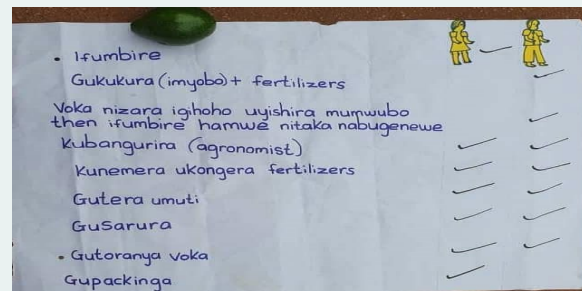 Ifumbire
Gukukura (imyobo) + fertilizers
Voka nizara igihoho uyishira mumwubo
then ifumbire hamwe nitaka nabugenewe
Kubangurira (agronomist)
Kunemera ukongera fertilizers
Gutera umuti
Gusarura
Gutoranya voka
Gupackinga